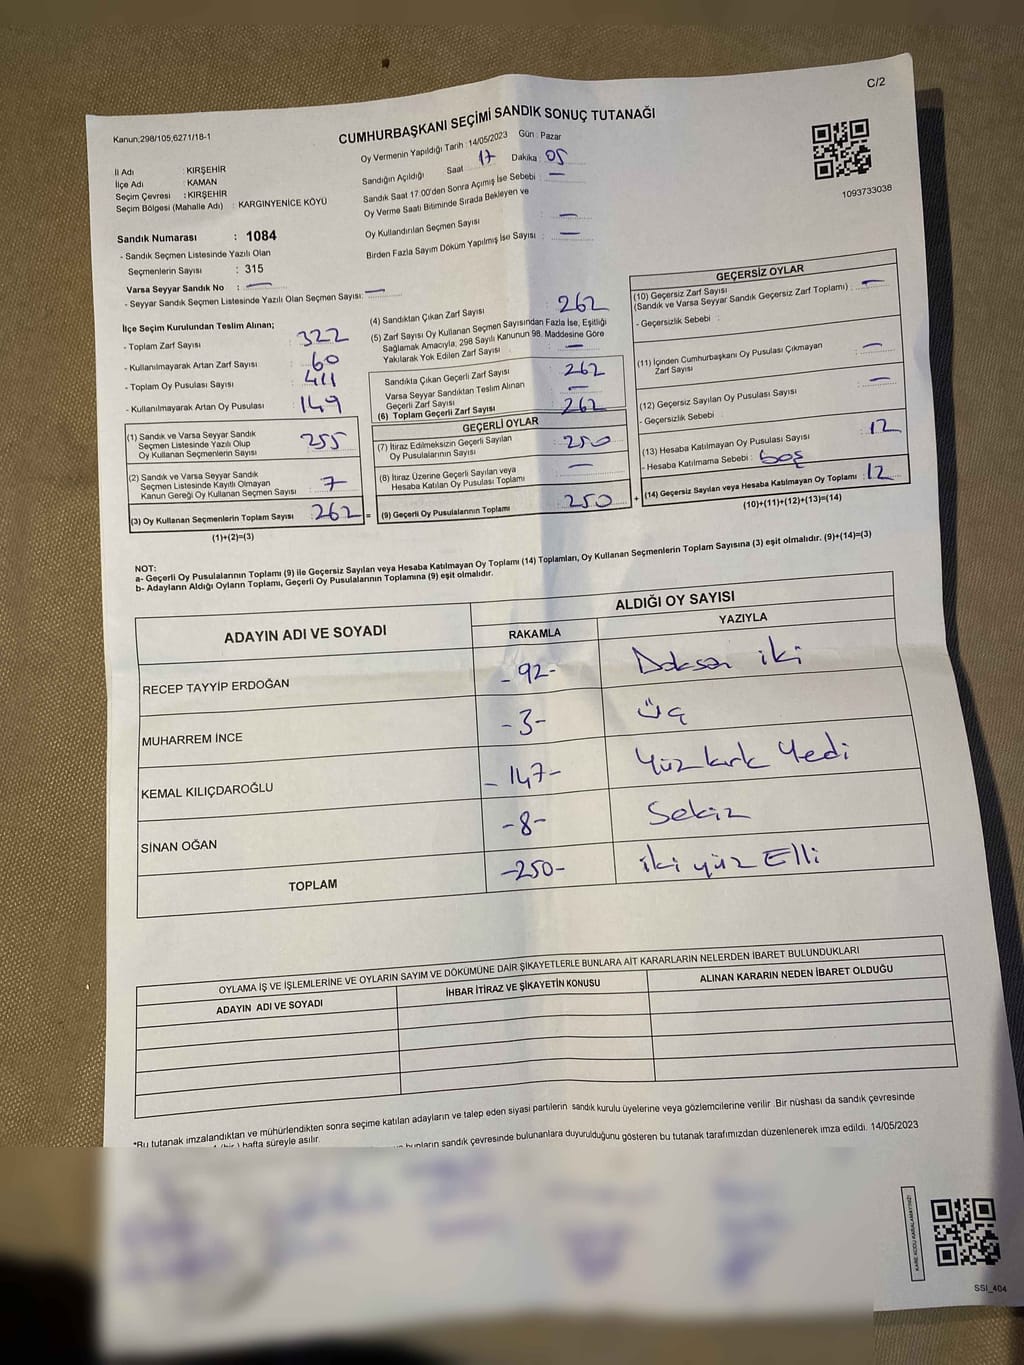 C/2
Kanun;298/105;6271/18-1
CUMHURBAŞKANI SEÇİMİ SANDIK SONUÇ TUTANAĞI
1093733038
İl Adı : KIRŞEHİR
İlçe Adı : KAMAN
Seçim Çevresi : KIRŞEHİR
Seçim Bölgesi (Mahalle Adı) : KARGINYENİCE KÖYÜ
Sandık Numarası : 1084
- Sandık Seçmen Listesinde Yazılı Olan
Seçmenlerin Sayısı : 315
Varsa Seyyar Sandık No : —
- Seyyar Sandık Seçmen Listesinde Yazılı Olan Seçmen Sayısı: —
Oy Vermenin Yapıldığı Tarih : 14/05/2023 Gün : Pazar
Sandığın Açıldığı Saat 17 Dakika : 05
Sandık Saat 17:00'den Sonra Açımış İse Sebebi : —
Oy Verme Saati Bitiminde Sırada Bekleyen ve
Oy Kullandırılan Seçmen Sayısı : —
Birden Fazla Sayım Döküm Yapılmış İse Sayısı : —
İlçe Seçim Kurulundan Teslim Alınan;
- Toplam Zarf Sayısı : 322
- Kullanılmayarak Artan Zarf Sayısı : 60
- Toplam Oy Pusulası Sayısı : 411
- Kullanılmayarak Artan Oy Pusulası : 149
(1) Sandık ve Varsa Seyyar Sandık
Seçmen Listesinde Yazılı Olup
Oy Kullanan Seçmenlerin Sayısı : 255
(2) Sandık ve Varsa Seyyar Sandık
Seçmen Listesinde Kayıtlı Olmayan
Kanun Gereği Oy Kullanan Seçmen Sayısı : 7
(3) Oy Kullanan Seçmenlerin Toplam Sayısı : 262 =
(1)+(2)=(3)
(4) Sandıktan Çıkan Zarf Sayısı : 262
(5) Zarf Sayısı Oy Kullanan Seçmen Sayısından Fazla İse, Eşitliği
Sağlamak Amacıyla, 298 Sayılı Kanunun 98. Maddesine Göre
Yakılarak Yok Edilen Zarf Sayısı : —
Sandıkta Çıkan Geçerli Zarf Sayısı : 262
Varsa Seyyar Sandıktan Teslim Alınan
Geçerli Zarf Sayısı : —
(6) Toplam Geçerli Zarf Sayısı : 262
GEÇERLİ OYLAR
(7) İtiraz Edilmeksizin Geçerli Sayılan
Oy Pusulalarının Sayısı : 250
(8) İtiraz Üzerine Geçerli Sayılan veya
Hesaba Katılan Oy Pusulası Toplamı : —
(9) Geçerli Oy Pusulalarının Toplamı : 250 +
GEÇERSİZ OYLAR
(10) Geçersiz Zarf Sayısı
(Sandık ve Varsa Seyyar Sandık Geçersiz Zarf Toplamı) : —
- Geçersizlik Sebebi :
(11) İçinden Cumhurbaşkanı Oy Pusulası Çıkmayan
Zarf Sayısı : —
(12) Geçersiz Sayılan Oy Pusulası Sayısı : —
- Geçersizlik Sebebi :
(13) Hesaba Katılmayan Oy Pusulası Sayısı : 12
- Hesaba Katılmama Sebebi : boş
(14) Geçersiz Sayılan veya Hesaba Katılmayan Oy Toplamı : 12
(10)+(11)+(12)+(13)=(14)
NOT:
a- Geçerli Oy Pusulalarının Toplamı (9) ile Geçersiz Sayılan veya Hesaba Katılmayan Oy Toplamı (14) Toplamları, Oy Kullanan Seçmenlerin Toplam Sayısına (3) eşit olmalıdır. (9)+(14)=(3)
b- Adayların Aldığı Oyların Toplamı, Geçerli Oy Pusulalarının Toplamına (9) eşit olmalıdır.
ADAYIN ADI VE SOYADI
ALDIĞI OY SAYISI
RAKAMLA YAZIYLA
RECEP TAYYİP ERDOĞAN -92- Doksan iki
MUHARREM İNCE -3- Üç
KEMAL KILIÇDAROĞLU -147- Yüz kırk Yedi
SİNAN OĞAN -8- Sekiz
TOPLAM -250- iki yüz Elli
OYLAMA İŞ VE İŞLEMLERİNE VE OYLARIN SAYIM VE DÖKÜMÜNE DAİR ŞİKAYETLERLE BUNLARA AİT KARARLARIN NELERDEN İBARET BULUNDUKLARI
ADAYIN ADI VE SOYADI İHBAR İTİRAZ VE ŞİKAYETİN KONUSU ALINAN KARARIN NEDEN İBARET OLDUĞU
*Bu tutanak imzalandıktan ve mühürlendikten sonra seçime katılan adayların ve talep eden siyasi partilerin sandık kurulu üyelerine veya gözlemcilerine verilir .Bir nüshası da sandık çevresinde
hafta süreyle asılır.
bunların sandık çevresinde bulunanlara duyurulduğunu gösteren bu tutanak tarafımızdan düzenlenerek imza edildi. 14/05/2023
KARE KODU KARALAMAYINIZ!
SSI_404